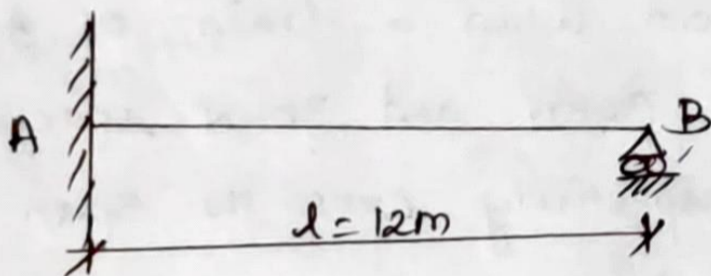 A
B
l = 12m